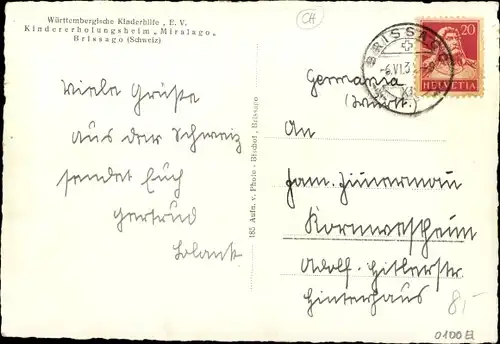 Württembergische Kinderhilfe, E. V.
Kindererholungsheim „Miralago"
Brissago (Schweiz)
CH
BRISSAGO
-6.VI.3
20
HELVETIA
Germania
(Württ.)
Viele Grüße
aus der Schweiz
sendet Euch
Gertrud
185 Aufn. v. Photo - Bischof, Brissago
An
Fam. Zimmermann
Kornwestheim
Adolf-Hitlerstr
Hinterhaus
8,-
0100